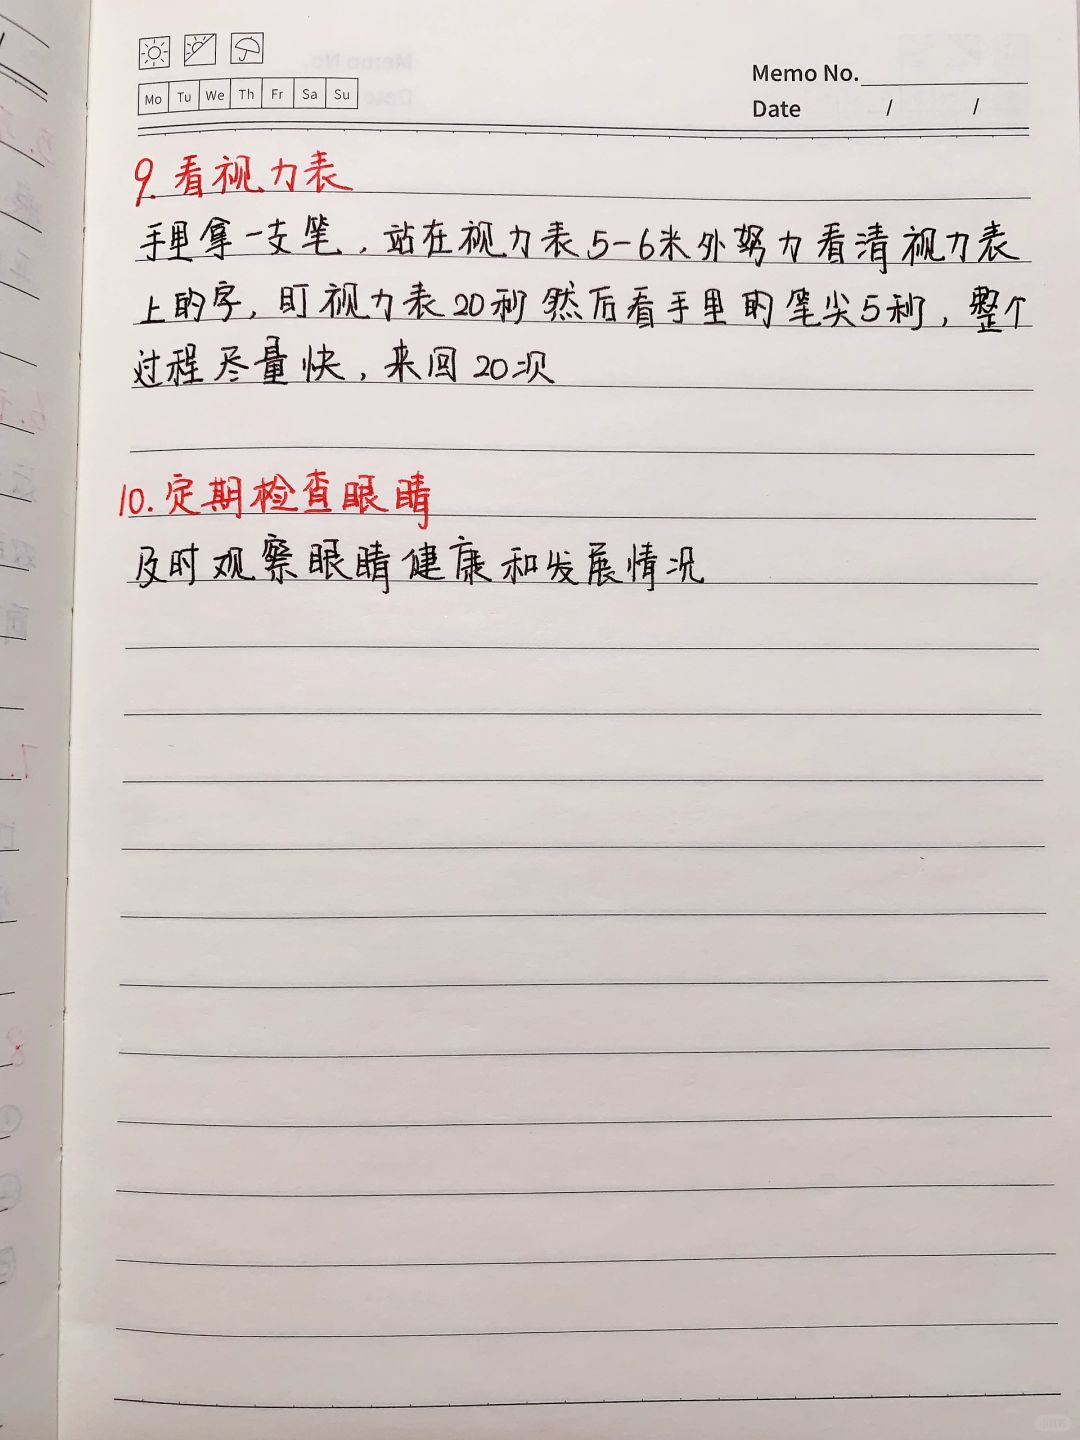 Mo Tu We Th Fr Sa Su
Memo No.
Date / /
9. 看视力表
手里拿一支笔，站在视力表5-6米外努力看清视力表
上的字，盯视力表20秒然后看手里的笔尖5秒，整个
过程尽量快，来回20次
10. 定期检查眼睛
及时观察眼睛健康和发展情况